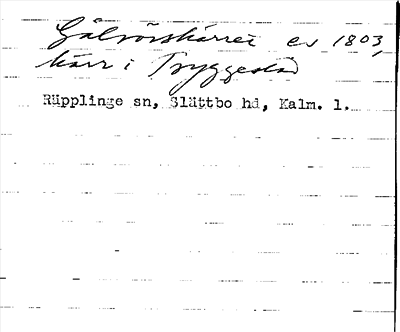 Gålrörskärret ev 1803,
kärr i Bryggestad
Räpplinge sn, Slättbo hd, Kalm. l.